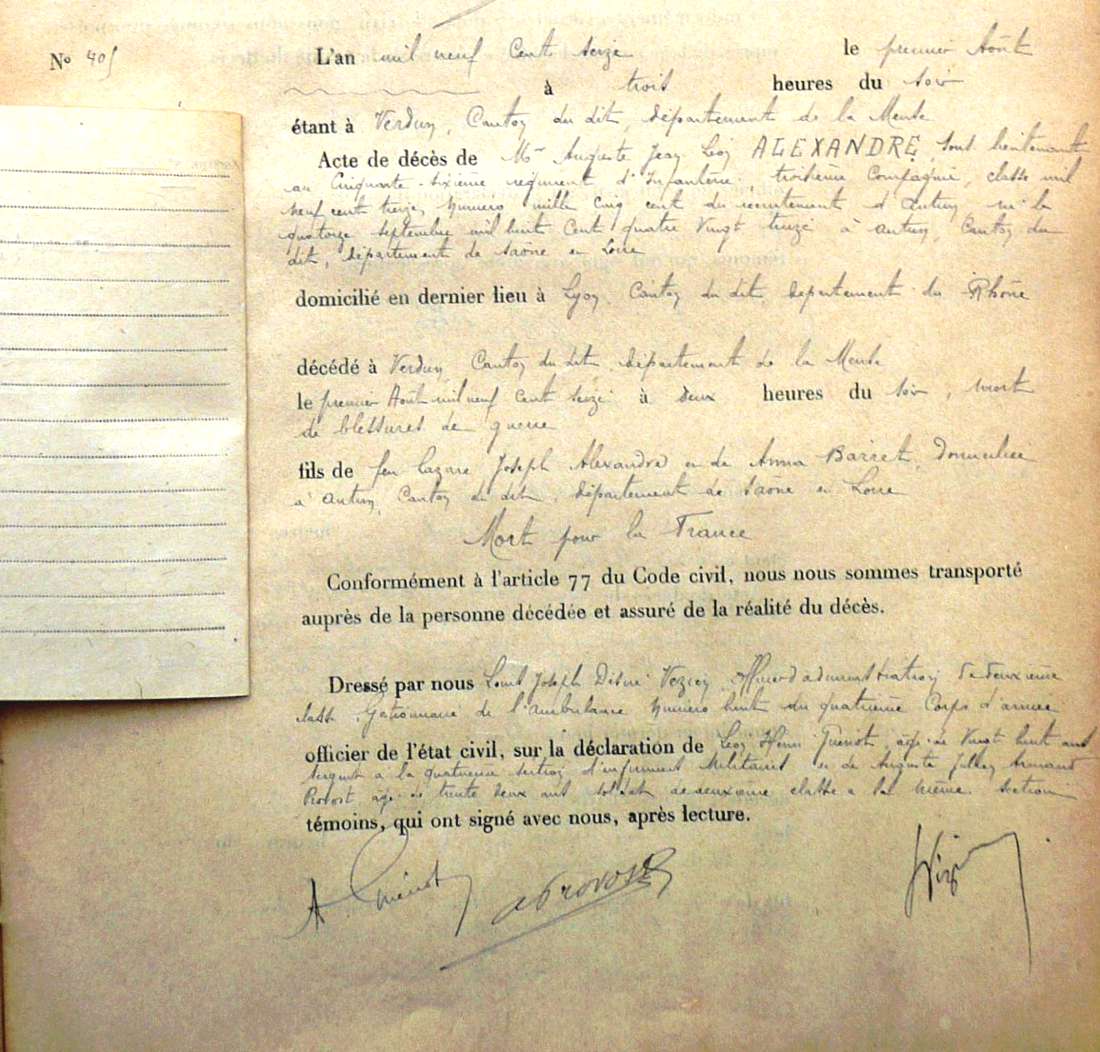 N° 405 L'an mil neuf Cent Seize le premier Août
à trois heures du soir
étant à Verdun, Canton du dit, département de la Meuse
Acte de décès de Mr Auguste Jean Léon ALEXANDRE, sous lieutenant
au Cinquante sixième régiment d'Infanterie, troisième Compagnie, classe mil
neuf cent treize, Numéro mille cinq cent du recrutement d'Autun né le
quatorze septembre mil huit Cent quatre Vingt treize à Autun, Canton du
dit, département de Saône et Loire
domicilié en dernier lieu à Lyon, Canton du dit, département du Rhône
décédé à Verdun, Canton du dit département de la Meuse
le premier Août mil neuf Cent seize à deux heures du soir, mort
de blessures de guerre
fils de feu Lazare Joseph Alexandre et de Anna Barret, domiciliée
à Autun, Canton du dit, département de Saône et Loire
Mort pour la France
Conformément à l'article 77 du Code civil, nous nous sommes transporté
auprès de la personne décédée et assuré de la réalité du décès.
Dressé par nous Louis Joseph Désiré Officier d'administration de deuxième
classe Gestionnaire de l'Ambulance Numéro huit du quatrième Corps d'armée
officier de l'état civil, sur la déclaration de Léon Henri Guenot, âgé de Vingt huit ans
Sergent à la quatrième section d'infirmiers Militaires et de Auguste Armand
Provost âgé de trente deux ans soldat de deuxième classe à la même section
témoins, qui ont signé avec nous, après lecture.
Guenot a Provost